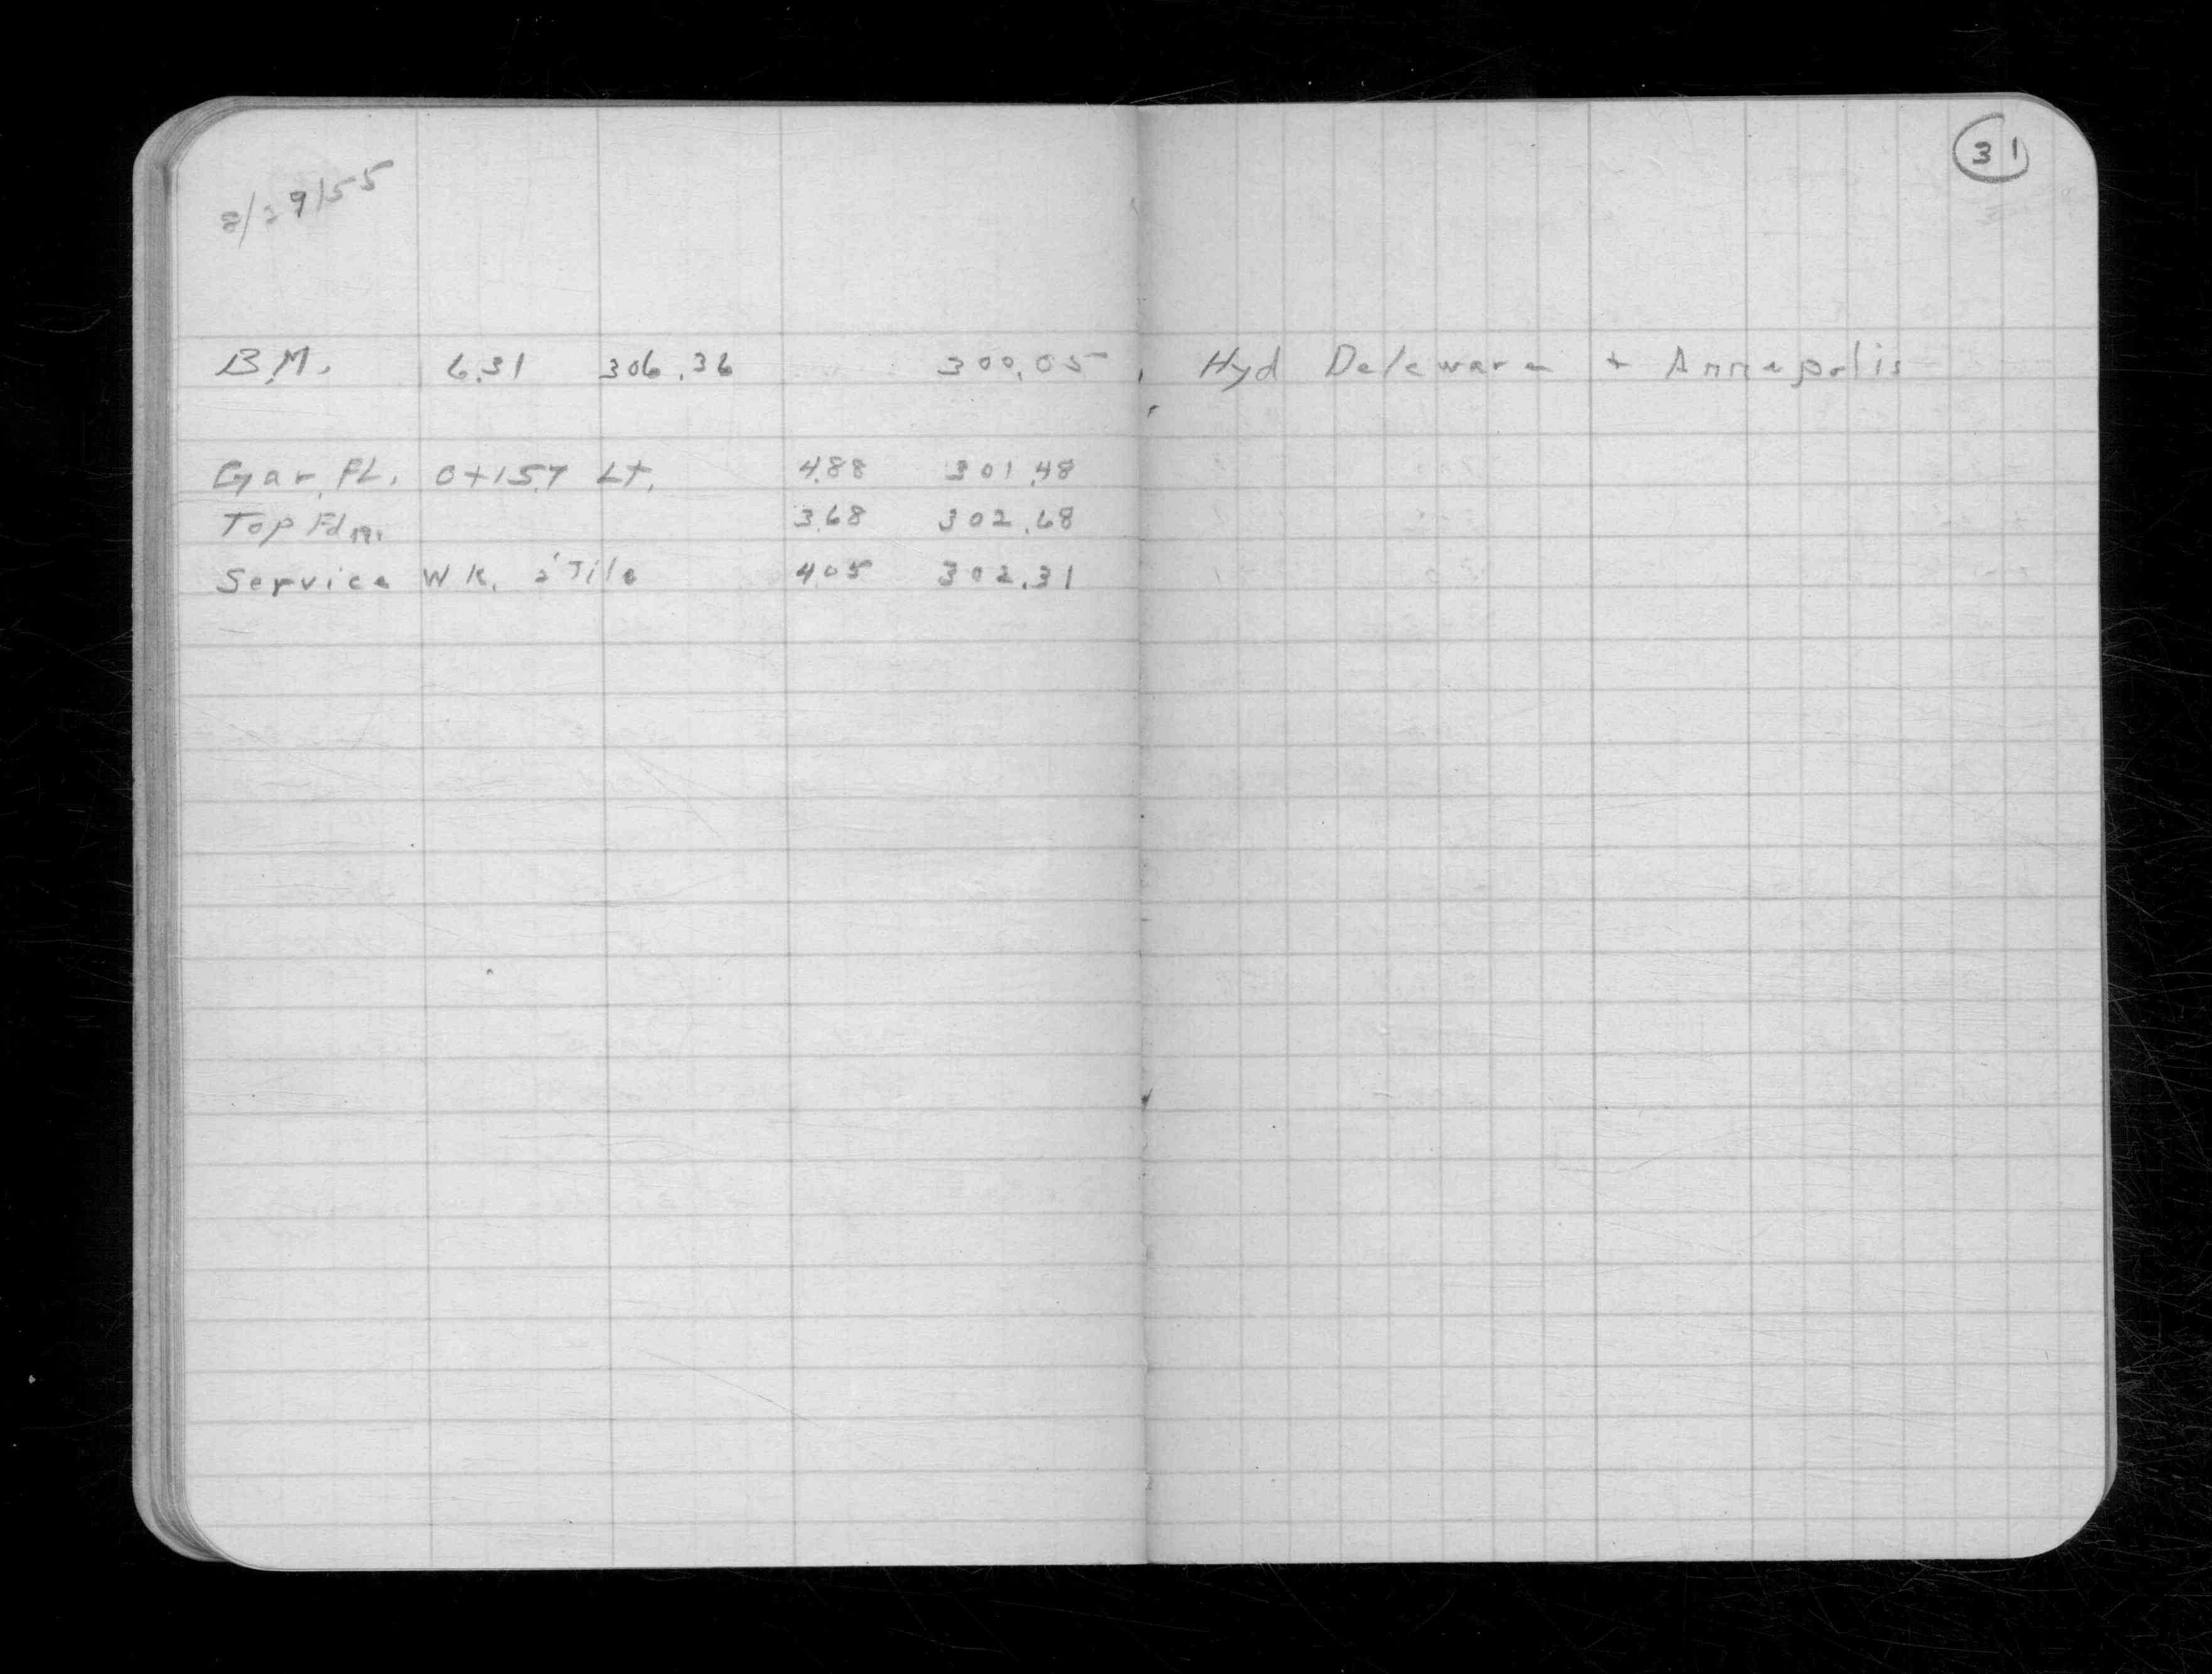 31
8/29/55
B.M. 6.31 306.36 300.05 Hyd Deleware + Annapolis
Gar. FL. 0+157 Lt. 4.88 301.48
Top Fdn. 3.68 302.68
Service Wk. 2' Tile 4.05 302.31